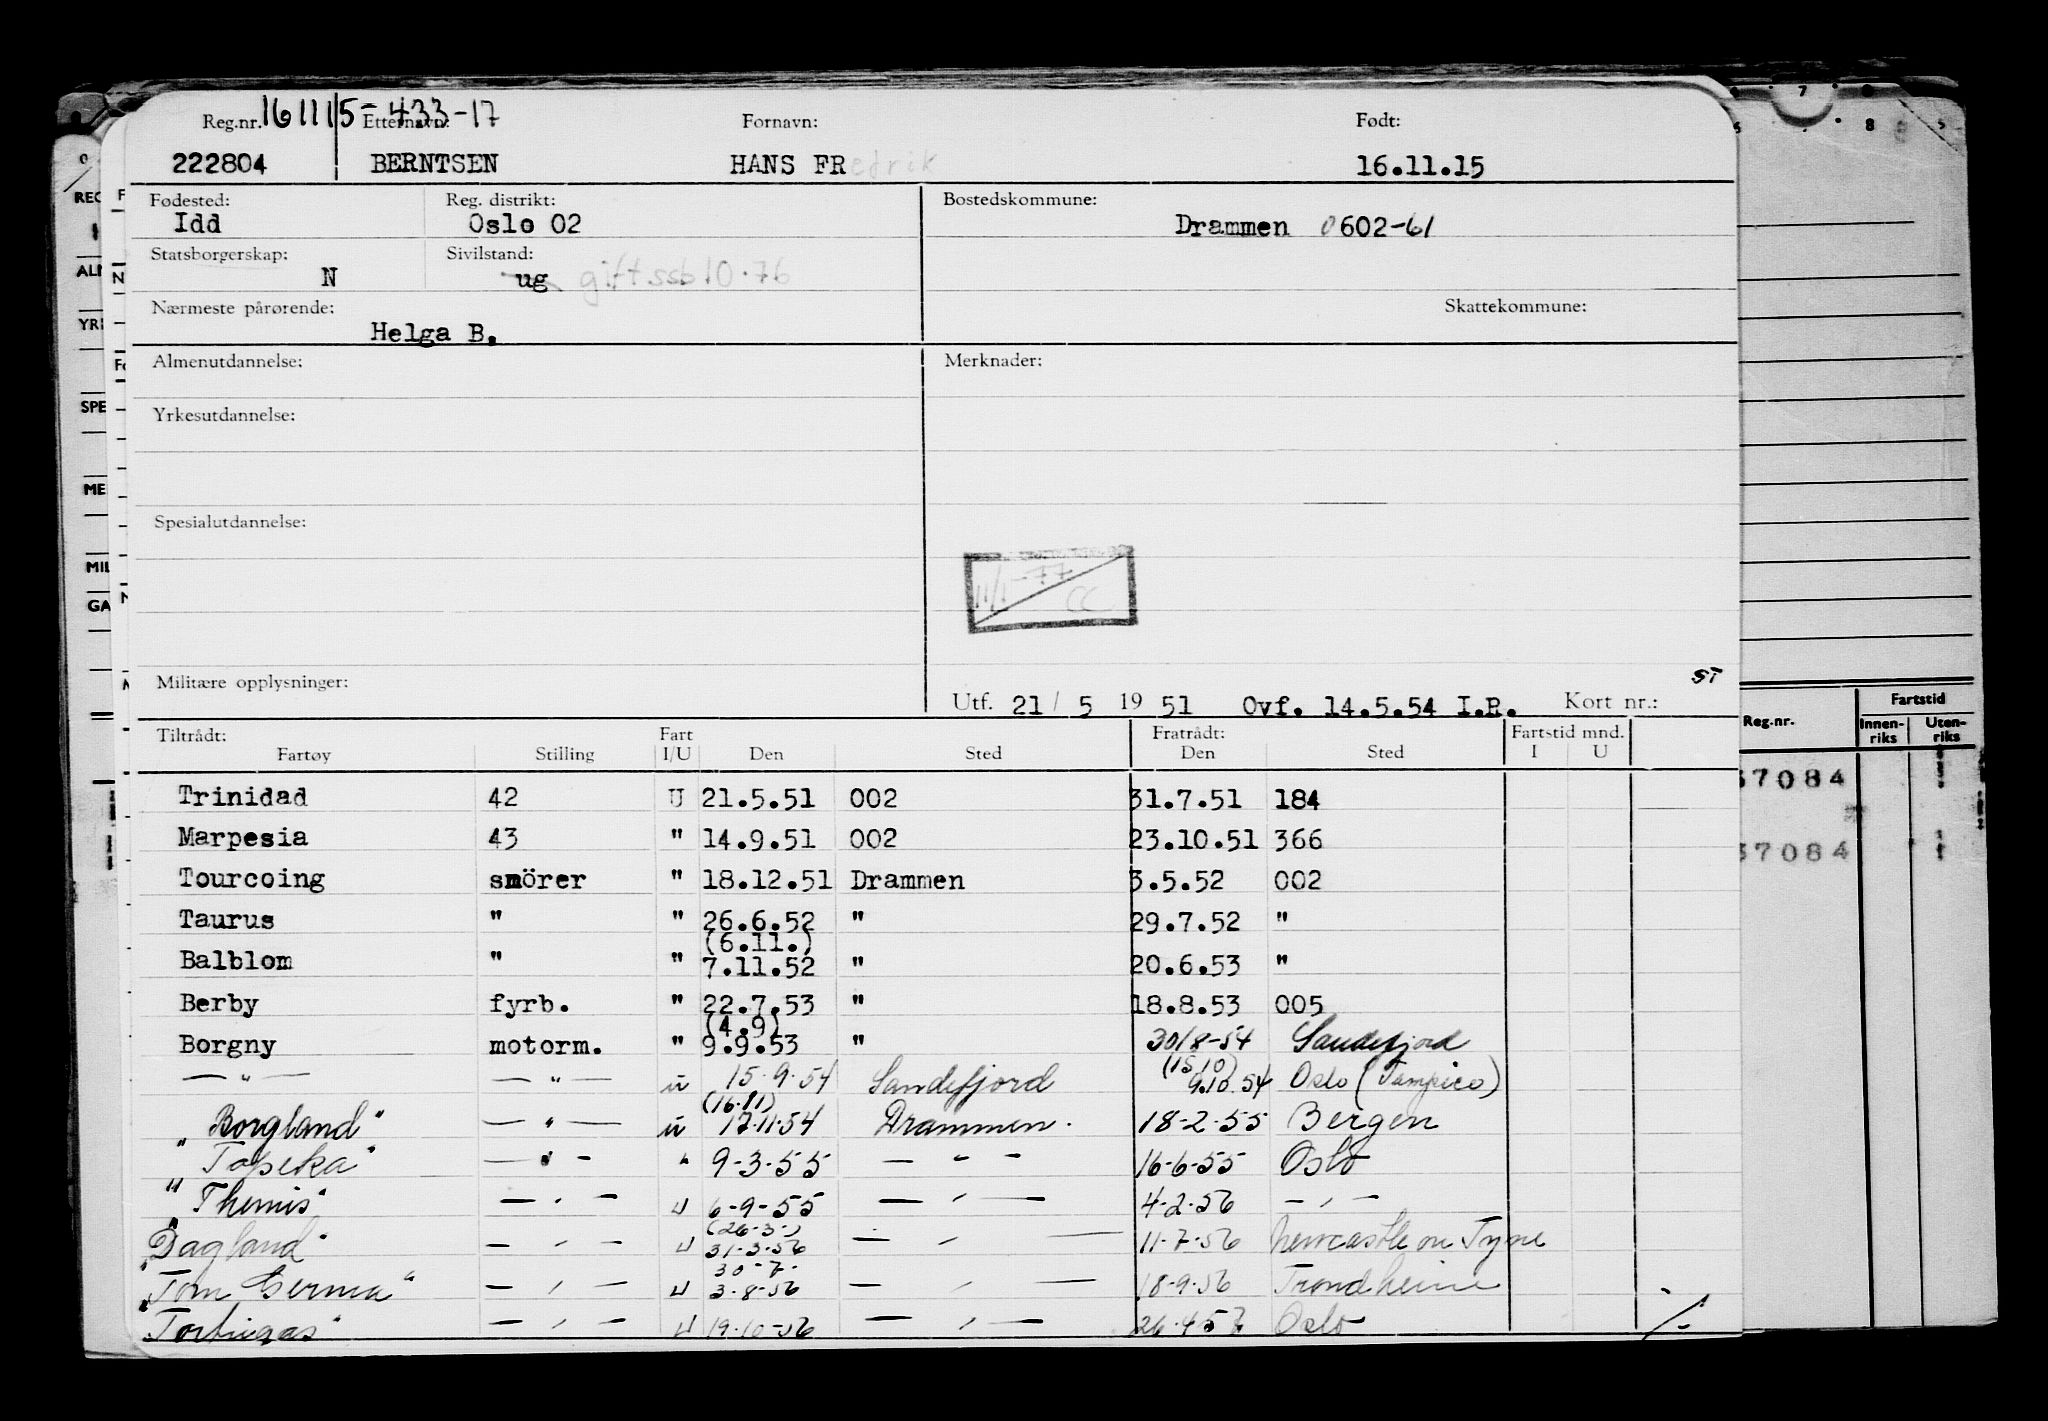 161115-433-17
Reg.nr. Etternavn: Fornavn: Født:
222804 BERNTSEN HANS FRedrik 16.11.15
Fødested: Reg. distrikt: Bostedskommune:
Idd Oslo 02 Drammen 0602-61
Statsborgerskap: Sivilstand:
N ug gift ssb 10.76
Nærmeste pårørende: Skattekommune:
Helga B.
Almenutdannelse: Merknader:
Yrkesutdannelse:
Spesialutdannelse:
11/1-77
CC
ST
Militære opplysninger: Utf. 21 / 5 19 51 Ovf. 14.5.54 I.R. Kort nr.:
Tiltrådt: Fart Fratrådt: Fartstid mnd.
Fartøy Stilling I/U Den Sted Den Sted I U
Trinidad 42 U 21.5.51 002 31.7.51 184
Marpesia 43 " 14.9.51 002 23.10.51 366
Tourcoing smörer " 18.12.51 Drammen 3.5.52 002
Taurus " " 26.6.52 " 29.7.52 "
(6.11.)
Balblom " " 7.11.52 " 20.6.53 "
Berby fyrb. " 22.7.53 " 18.8.53 005
(4.9)
Borgny motorm. " 9.9.53 " 30/8-54 Sandefjord
(15/10)
— " — — " — u 15.9.54 Sandefjord 9.10.54 Oslo (Tampico)
(16.11)
"Borgland" — " — u 17.11.54 Drammen. 18-2-55 Bergen
"Topeka" — " — " 9-3-55 — " — 16-6-55 Oslo
"Themis" — " — u 6-9-55 — " — 4-2-56 — " —
(26-3-)
"Dagland" — " — u 31-3-56 — " — 11-7-56 Newcastle on Tyne
30-7-
"Tom Germa" — " — u 3-8-56 — " — 18-9-56 Trondheim
"Tortugas" — " — u 19-10-56 — " — 26-4-57 Oslo
REG
ALM
YRK
SPE
ME
MIL
GA
7 8
Reg.nr. Fartstid
Innen-riks Uten-riks
37084
37084